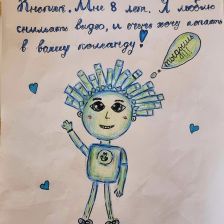 Кнопик. Мне 8 лет. Я люблю
снимать видео, и очень хочу попасть
в вашу команду!